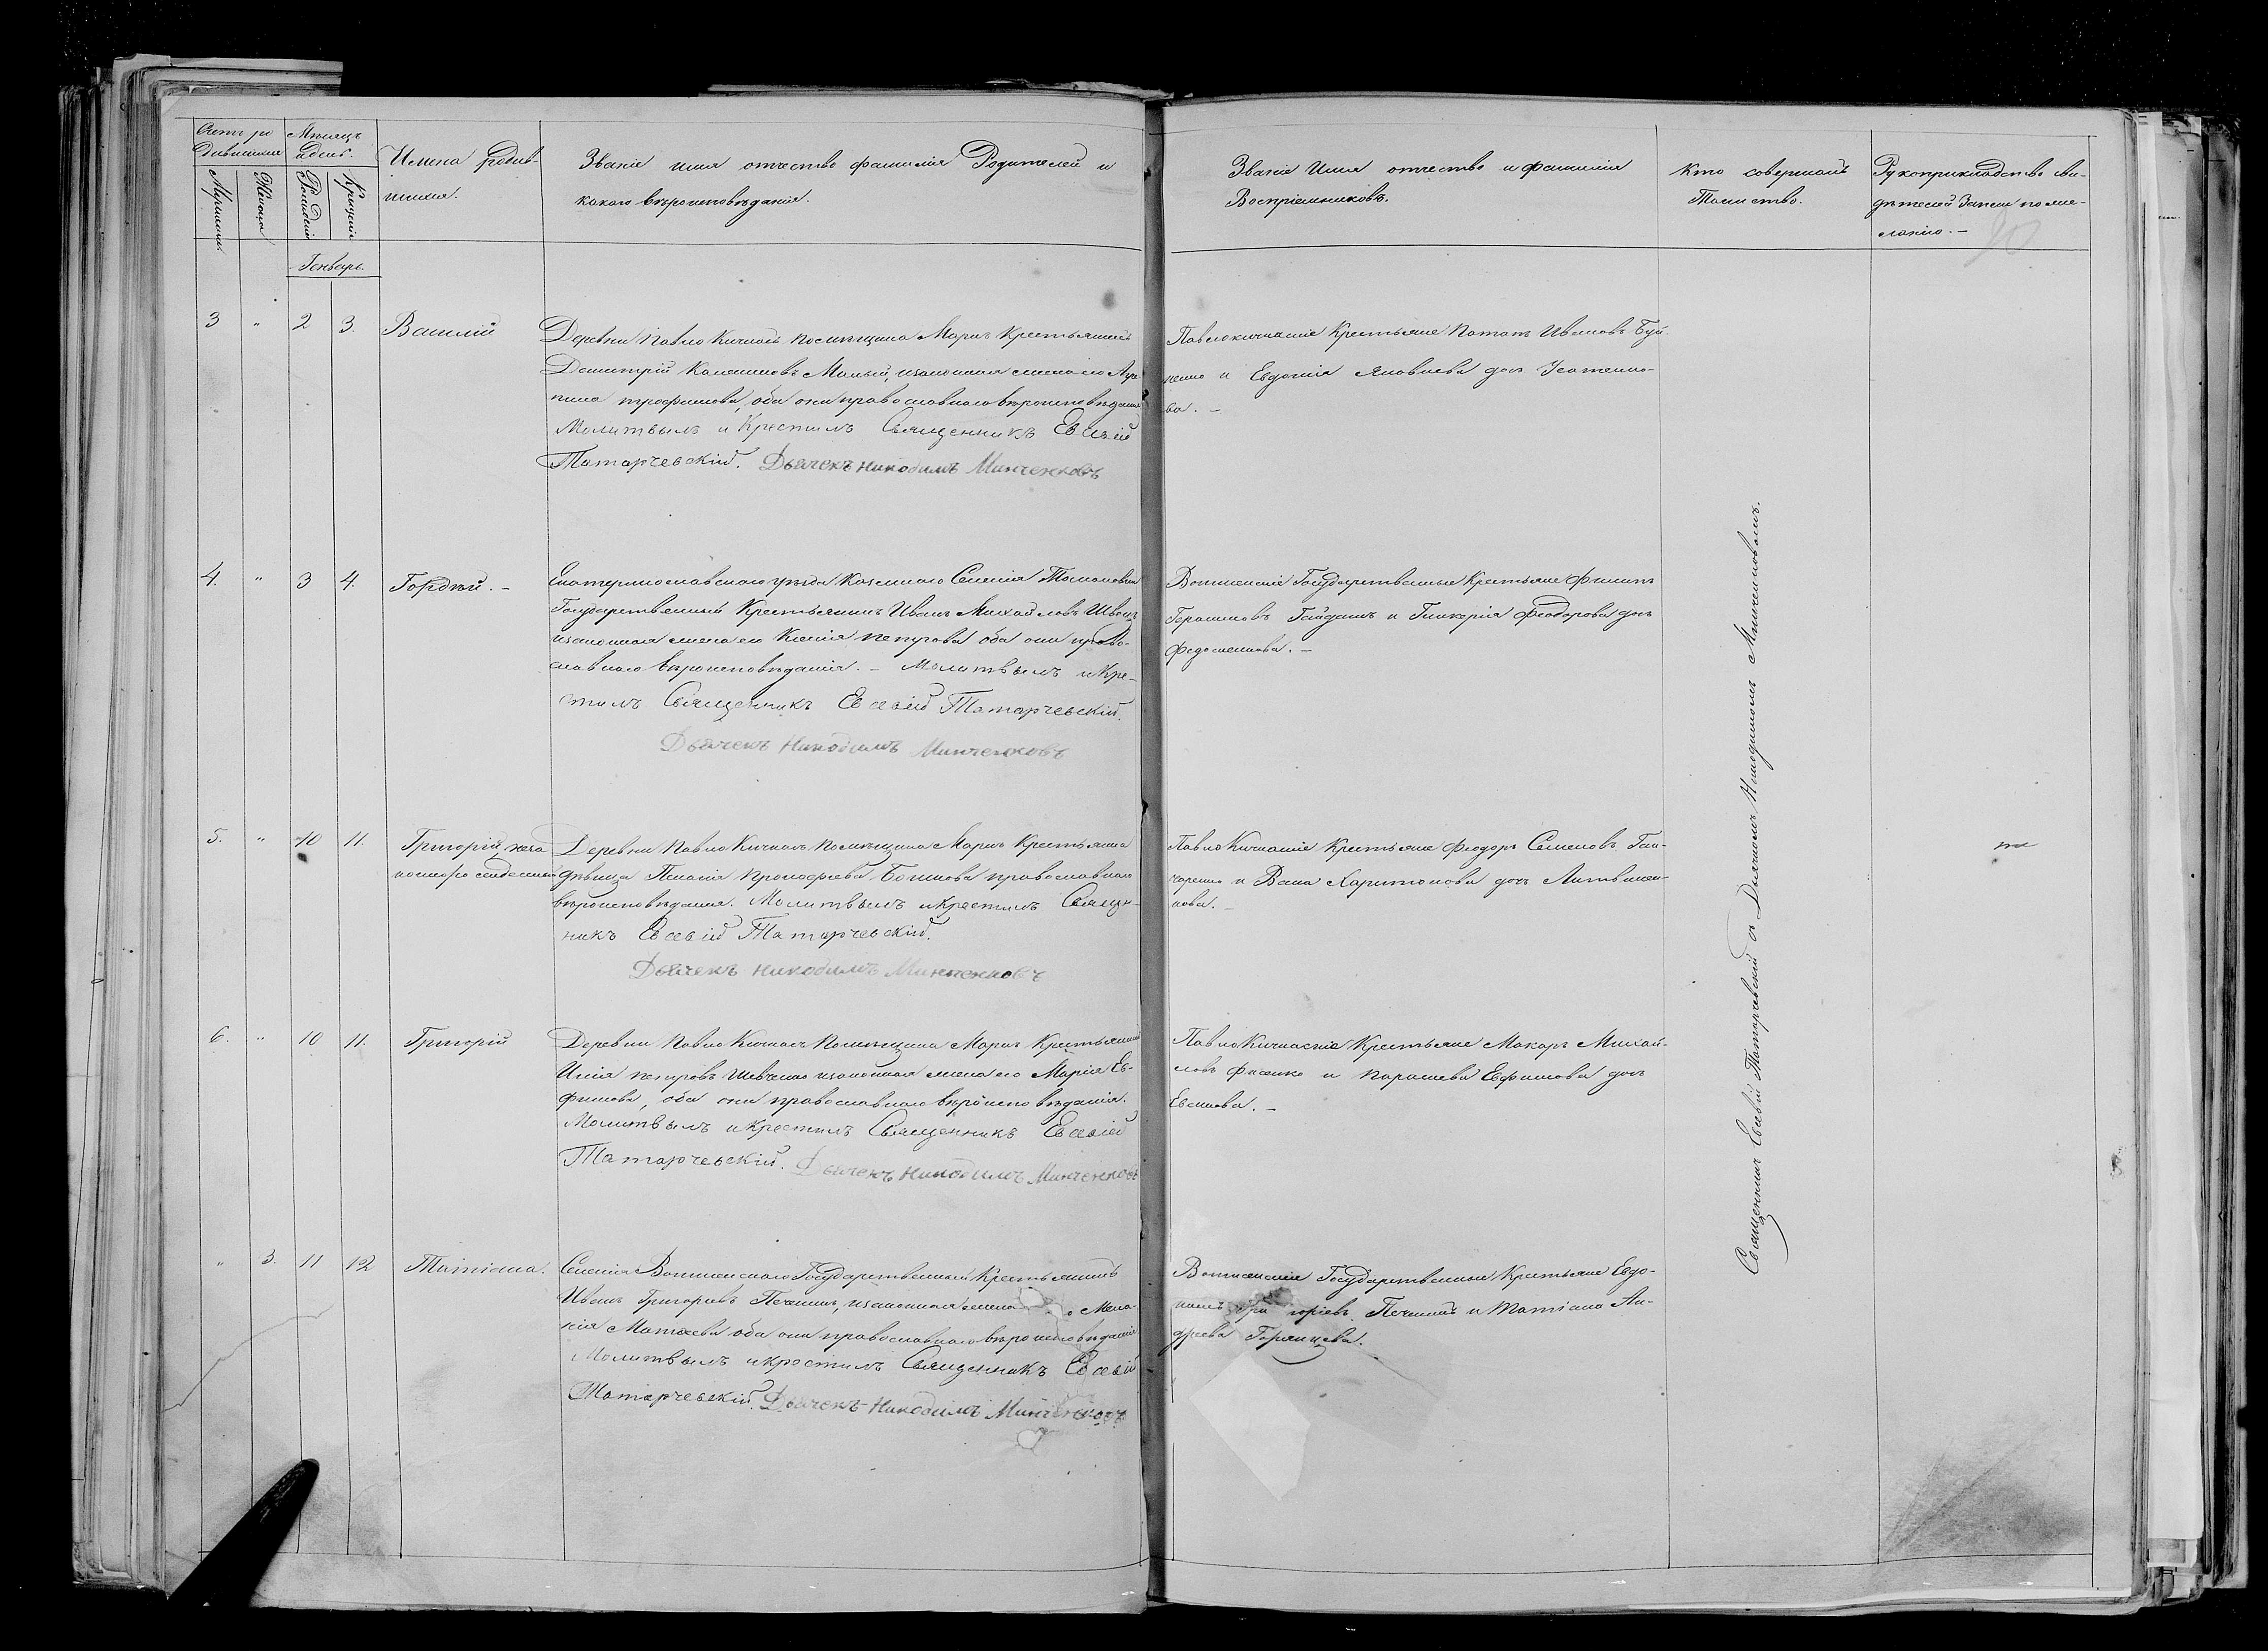 Счетъ ро
дившихся
Мѣсяцъ
и день.
Имена родив-
шихся.
Званіе имя отчество фамилія Родителей и
какого вѣроисповѣданія.
Званіе Имя отчество и фамилія
Воспріемниковъ.
Кто совершалъ
Таинство.
Рукоприкладство сви-
дѣтелей записи по же-
ланію. —
Мужеска
Женска
Рожденія
Крещенія
Генварь.
3 " 2 3. Василій
Деревни Павло Кичкасъ помѣщика Маркъ Крестьянинъ
Димитрій Калинниковъ Малый, и законная жена его Агри-
пина Трофимова, оба они православнаго вѣроисповѣданія
Молитвылъ и Крестилъ Священникъ Евсевій
Татарчевскій. Дьячекъ Никодимъ Минченковъ
Павлокичкаскіе Крестьяне Потапъ Ивановъ
и Евдокія Яковлева дочь
ва. —
4. " 3 4. Гордѣй. —
Екатеринославскаго уѣзда Казеннаго Селенія Томаковки
Государственный Крестьянинъ Иванъ Михайловъ Швецъ
и законная жена его Ксенія Петрова оба они право-
славнаго вѣроисповѣданія. — Молитвылъ и Кре-
стилъ Священникъ Евсевій Татарчевскій.
Дьячекъ Никодимъ Минченковъ
Государственные Крестьяне Филипъ
Герасимовъ Гайданъ и Гликерія Феодорова дочь
5. " 10 11. Григорій неза
коннорожденный
Деревни Павло Кичкасъ помѣщика Маркъ Крестьянка
дѣвица Пелагія Прокофьева православнаго
вѣроисповѣданія. Молитвылъ и крестилъ Священ-
никъ Евсевій Татарчевскій.
Дьячекъ Никодимъ Минченковъ
Павло Кичкаскіе Крестьяне Феодоръ Семеновъ Ган-
чаренко и Васса Харитонова дочь Литвинен-
кова. —
6. " 10 11. Григорій
Деревни Павло Кичкасъ Помѣщика Маркъ Крестьянинъ
Илія Петровъ Шевченко и законная жена его Марія Ев-
фимова, оба они православнаго вѣроисповѣданія.
Молитвылъ и крестилъ Священникъ Евсевій
Татарчевскій. Дьячекъ Никодимъ Минченковъ
Павло Кичкаскіе Крестьяне Макаръ Михай-
ловъ Фисенко и Параскева Евфимова дочь
" 3. 11 12 Татіана.
Селенія Государственный Крестьянинъ
Иванъ Григорьевъ Печинъ, и законная жена Мела-
нія Матвеева оба они православнаго вѣроисповѣданія
Молитвылъ и крестилъ Священникъ Евсевій
Татарчевскій. Дьячекъ Никодимъ Минченковъ
Государственные Крестьяне Евдо-
кимъ Григоріевъ Печинъ и Татіана Ан-
дреева Горянцева.
Священникъ Евсевій Татарчевскій съ Дьячкомъ Никодимомъ Минченковымъ.